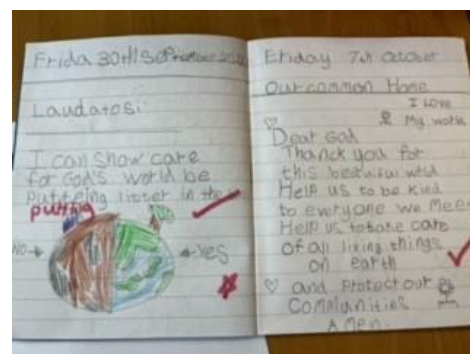 Frida 30th September
Laudatosi
I can show care
for God's world be
putteing litter in the
putting
NO →
← Yes
Friday 7th October
Our common Home
I Love
My world
Dear God
Thanck you for
this beatwiful wrld
Help us to be kind
to everyone we meet
Help us to take care
of all living things
on earth
and Protect our
Communities
Amen